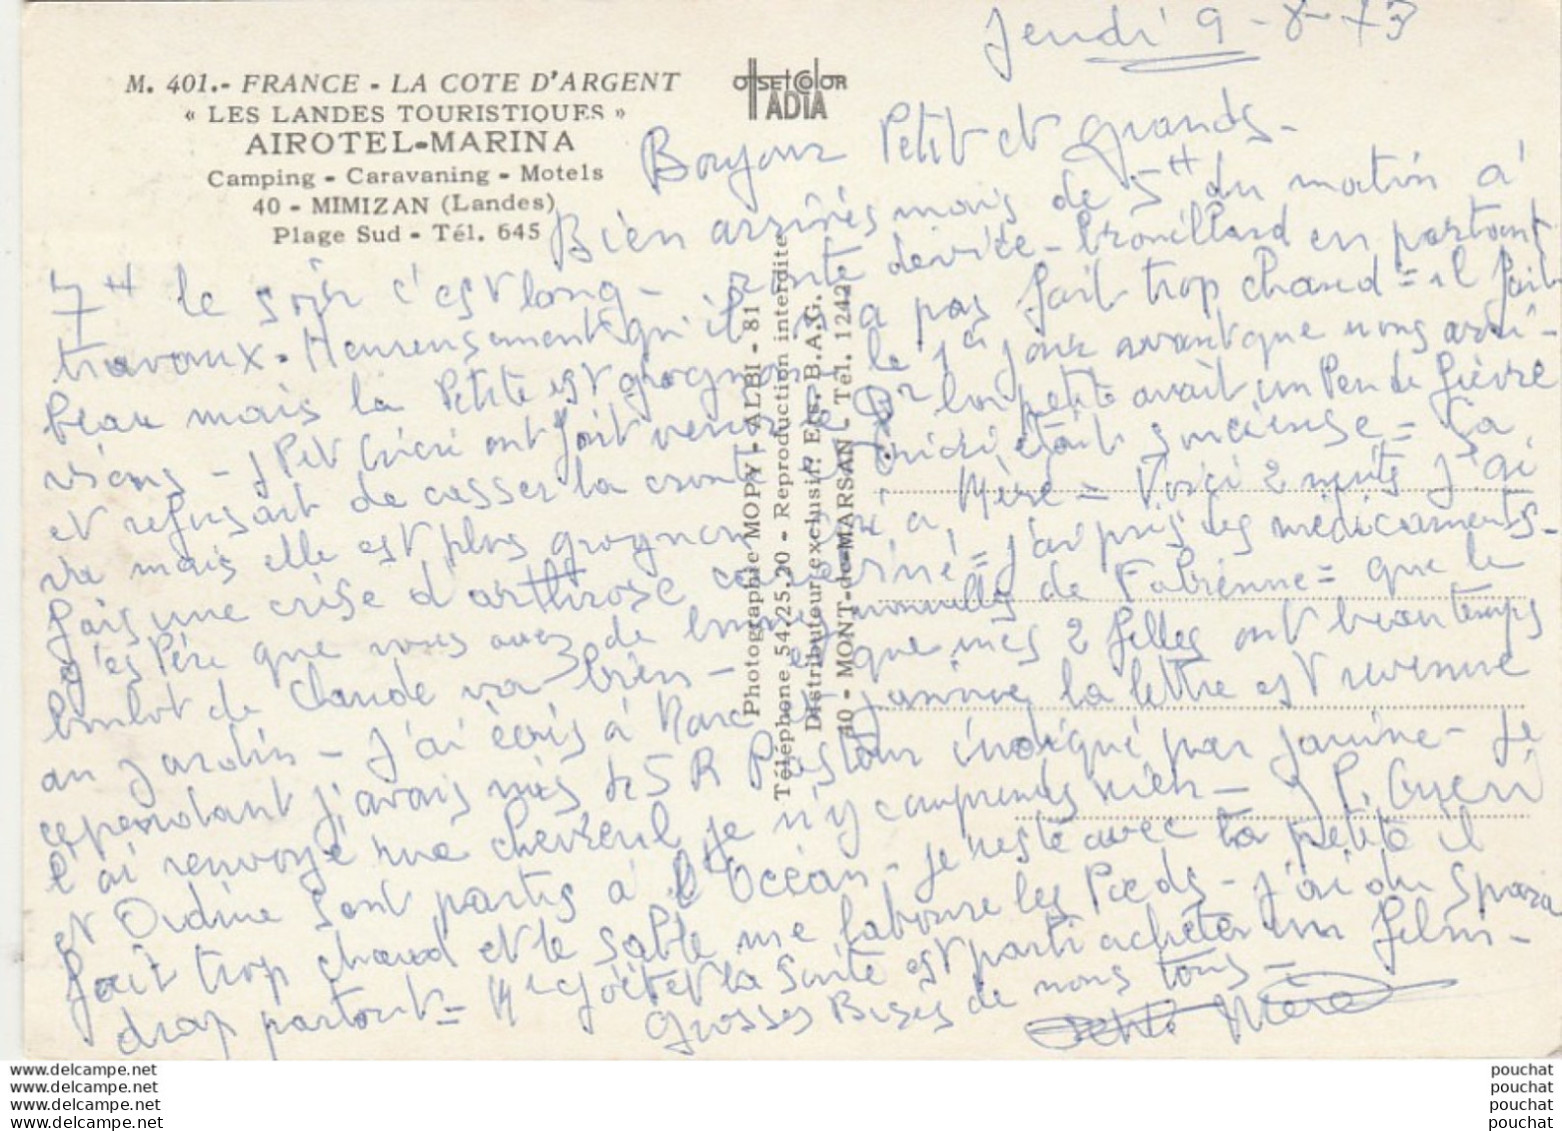 Jeudi 9-8-73
M. 401.- FRANCE - LA COTE D'ARGENT
« LES LANDES TOURISTIQUES »
AIROTEL-MARINA
Camping - Caravaning - Motels
40 - MIMIZAN (Landes)
Plage Sud - Tél. 645
OFFSET COLOR
ADIA
Photographie MOPY - ALBI - 81
Téléphone 54.25.20 - Reproduction interdite
Distributeur exclusif: Ets. B.A.G.
40 - MONT-de-MARSAN - Tél. 1242
Bonjour Petit et grands -
Bien arrivés mais de 5H du matin à
7H le soir c'est long - route brouillard en partant
travaux. Heureusement qu'il n'a pas fait trop chaud = il fait
beau mais la Petite est grognon le 1er jour avant que nous arri-
vions - J P et Cricri ont fait venir le Dr la petite avait un Peu de fièvre
et refusait de casser la croute Cricri était soucieuse = Sa
va mais elle est plus grognon Mère = Voici 2 nuits J'ai
fais une crise d'arthrose j'ai pris les médicaments -
j'espère que vous avez de bonnes nouvelles de Fabienne = que le
boulot de Claude va bien - et que mes 2 filles ont beau temps
au Jardin - J'ai écris à Marc Janine la lettre est revenue
cependant j'avais mis 5 R Pasteur indiqué par Janine - Je
l'ai renvoyé rue chevreul je n'y comprends rien - J P. Cricri
et sont partis à l'Océan - je reste avec la petite il
fait trop chaud et le sable me laboure les Pieds - J'ai du
drap partout = et la suite est parti acheter un film -
Grosses Bises de nous tous -
Mère
www.delcampe.net
www.delcampe.net
www.delcampe.net
www.delcampe.net
pouchat
pouchat
pouchat
pouchat